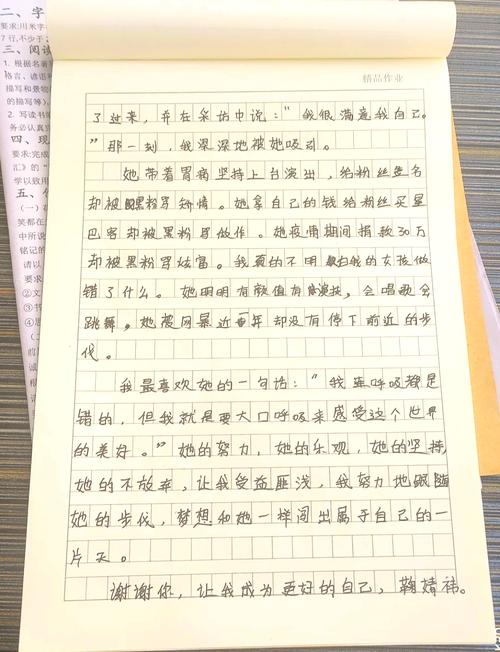 二、字
要求:用米字
7行,不少于2
三、阅读
1. 根据名著
格言、谚语
描写和景物
的描写等)
2. 写读书
务必认真
四、现
要求:完成
汇》的"
学以致用
五、
(一)在
笑都在
中所说
铭记的
请以
要求
②文
③书
④思
(二
前的
诚
精品作业
了过来，并在采访中说："我很满意我自己。
"那一刻，我深深地被她吸引。
她带着胃病坚持上台演出，给粉丝签名
却被黑粉骂矫情。她拿自己的钱给粉丝买星
巴客却被黑粉骂做作。她疫情期间捐款30万
却被黑粉骂炫富。我真的不明白我的女孩做
错了什么。她明明有颜值有演技，会唱歌会
跳舞。她被网暴近百年却没有停下前近的步
伐。
我最喜欢她的一句话："我连呼吸都是
错的，但我就是要大口呼吸来感受这个世界
的美好。"她的努力，她的乐观，她的坚持
她的不放弃，让我受益匪浅，我努力地跟随
她的步伐，梦想和她一样闯出属于自己的一
片天。
谢谢你，让我成为更好的自己，鞠婧祎。